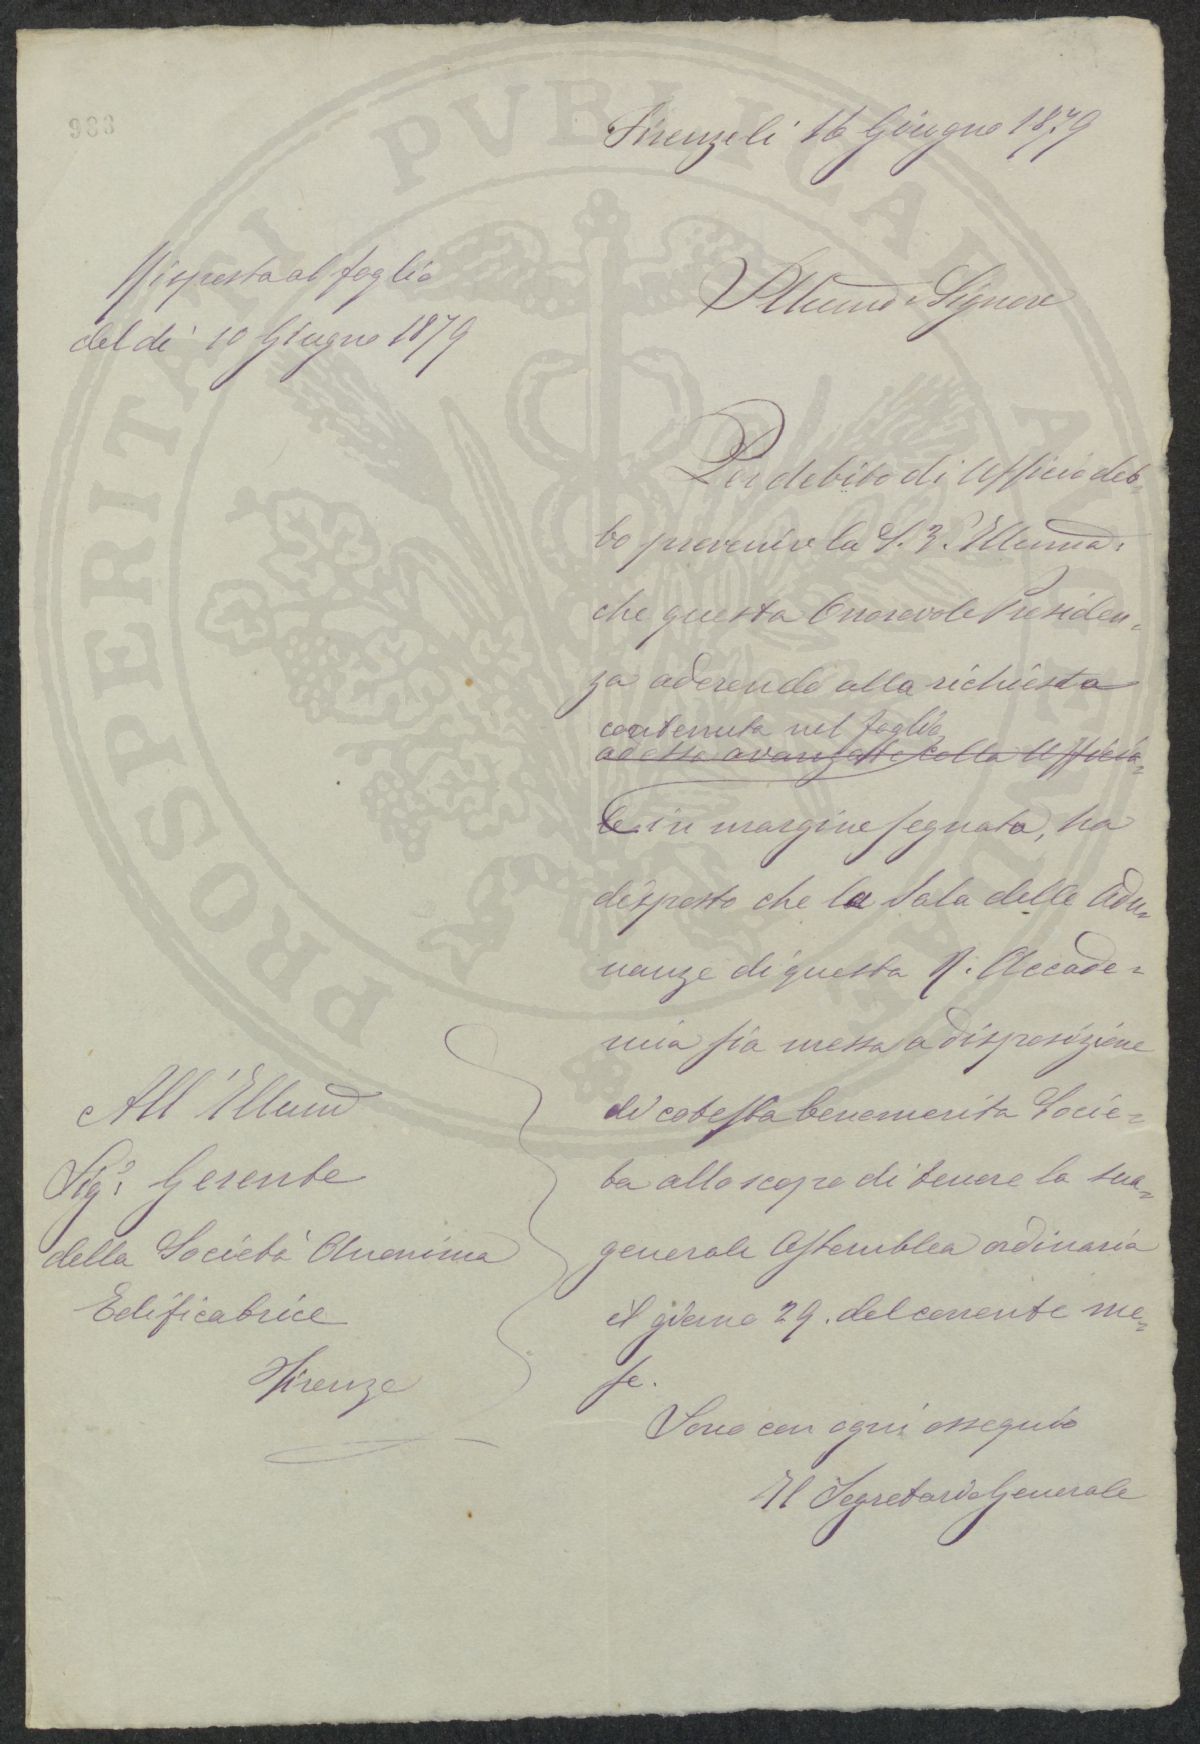 983
Firenze li 16 Giugno 1879
Risposta al foglio
del dì 10 Giugno 1879
Illumo Signore
Per debito di Ufficio deb-
bo prevenire la S. V. Illuma:
che questa Onorevole Presiden-
za aderendo alla richiesta
contenuta nel foglio
avanzata colla Officia-
le in margine segnata, ha
disposto che la Sala delle Adu-
nanze di questa R. Accade-
mia sia messa a disposizione
di cotesta benemerita Socie-
tà allo scopo di tenere la sua
generale Assemblea ordinaria
il giorno 29. del corrente me-
se.
Sono con ogni ossequio
Il Segretario Generale
All' Illumo
Sigr. Gerente
della Società Anonima
Edificatrice
Firenze
PROSPERITATI PVBLICAE AVGENDAE